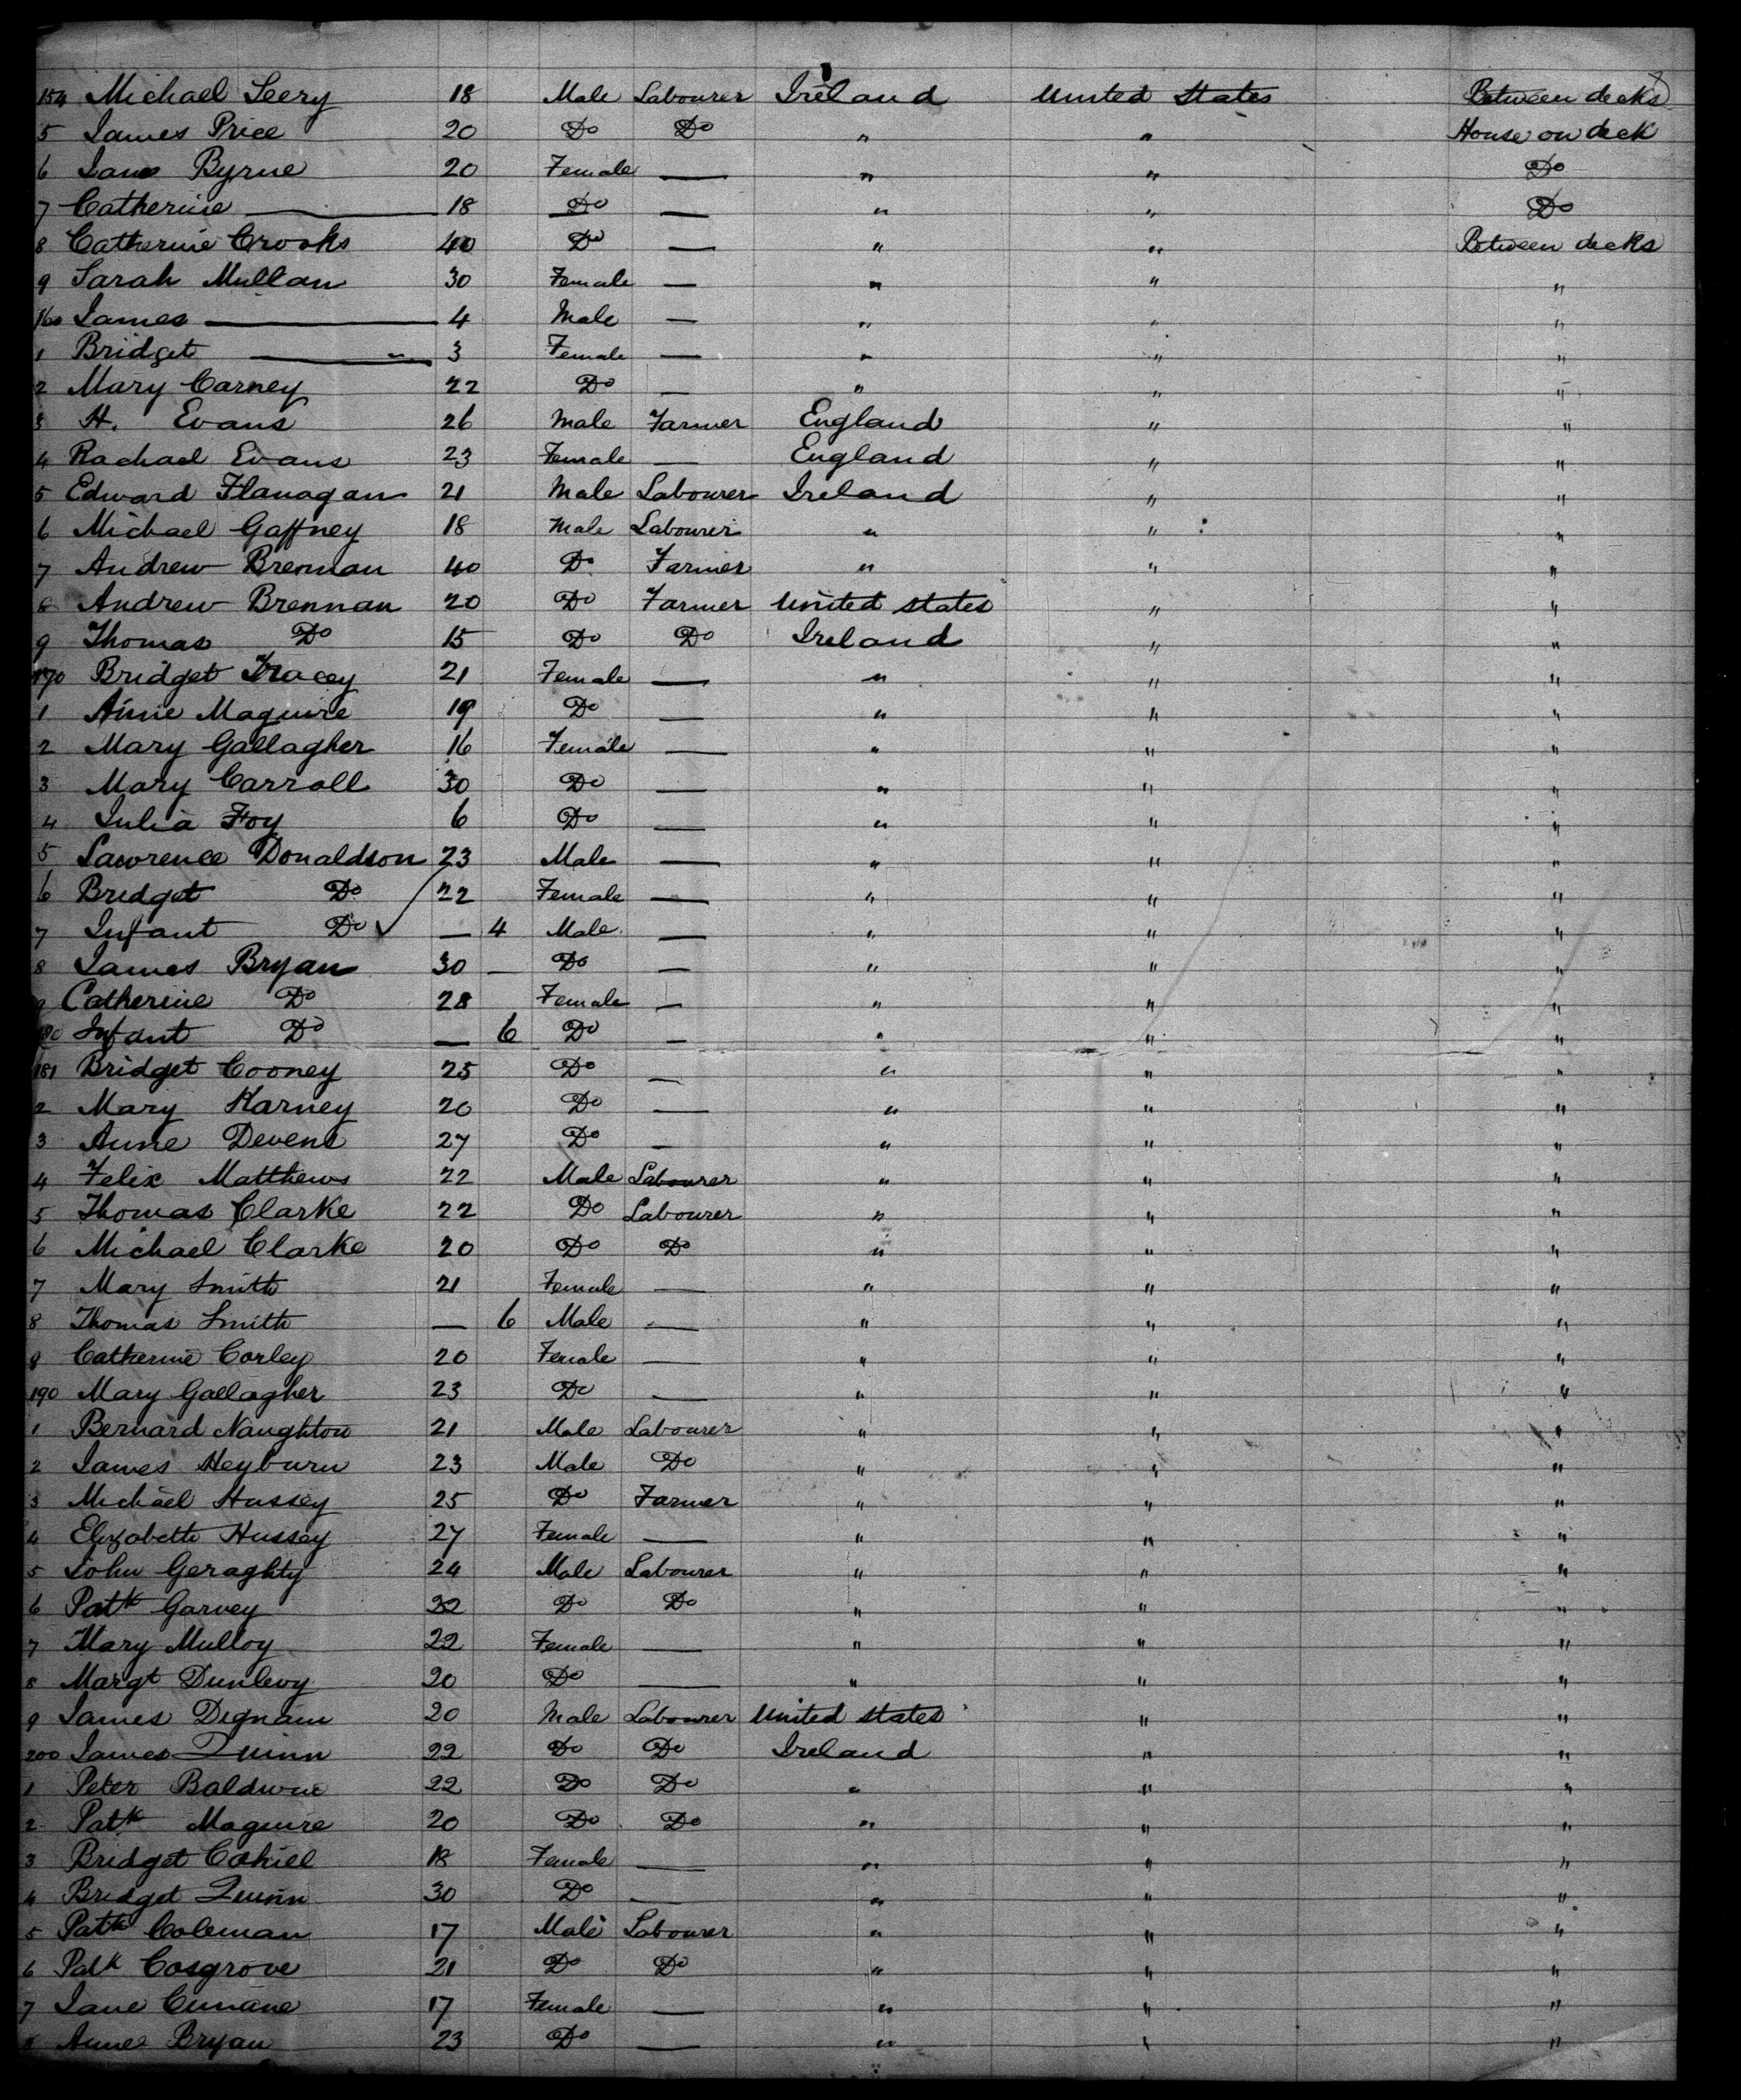 154 Michael Leery 18 Male Labourer Ireland United States Between decks
5 James Price 20 Do Do " " House on deck
6 Jane Byrne 20 Female — " " Do
7 Catherine — 18 Do — " " Do
8 Catherine Crooks 40 Do — " " Between decks
9 Sarah Mullan 30 Female — " " "
160 James — 4 Male — " " "
1 Bridget — 3 Female — " " "
2 Mary Carney 22 Do — " " "
3 H. Evans 26 Male Farmer England " "
4 Rachael Evans 23 Female — England " "
5 Edward Flanagan 21 Male Labourer Ireland " "
6 Michael Gaffney 18 Male Labourer " " "
7 Andrew Brennan 40 Do Farmer " " "
8 Andrew Brennan 20 Do Farmer United States " "
9 Thomas Do 15 Do Do Ireland " "
170 Bridget Tracey 21 Female — " " "
1 Annie Maguire 19 Do — " " "
2 Mary Gallagher 16 Female — " " "
3 Mary Carroll 30 Do — " " "
4 Julia Foy 6 Do — " " "
5 Lawrence Donaldson 23 Male — " " "
6 Bridget Do 22 Female — " " "
7 Infant Do — 4 Male — " " "
8 James Bryan 30 — Do — " " "
9 Catherine Do 28 Female — " " "
180 Infant Do — 6 Do — " " "
181 Bridget Cooney 25 Do — " " "
2 Mary Karney 20 Do — " " "
3 Anne Devene 27 Do — " " "
4 Felix Matthews 22 Male Labourer " " "
5 Thomas Clarke 22 Do Labourer " " "
6 Michael Clarke 20 Do Do " " "
7 Mary Smith 21 Female — " " "
8 Thomas Smith — 6 Male — " " "
9 Catherine Corley 20 Female — " " "
190 Mary Gallagher 23 Do — " " "
1 Bernard Naughton 21 Male Labourer " " "
2 James Heyburn 23 Male Do " " "
3 Michael Hussey 25 Do Farmer " " "
4 Elizabeth Hussey 27 Female — " " "
5 John Geraghty 24 Male Labourer " " "
6 Patk Garvey 22 Do Do " " "
7 Mary Mulloy 22 Female — " " "
8 Margt Dunlevy 20 Do — " " "
9 James Dignam 20 Male Labourer United States " "
200 James Quinn 22 Do Do Ireland " "
1 Peter Baldwin 22 Do Do " " "
2 Patk Maguire 20 Do Do " " "
3 Bridget Cahill 18 Female — " " "
4 Bridget Quinn 30 Do — " " "
5 Patk Coleman 17 Male Labourer " " "
6 Patk Cosgrove 21 Do Do " " "
7 Jane Cunane 17 Female — " " "
8 Anne Bryan 23 Do — " " "